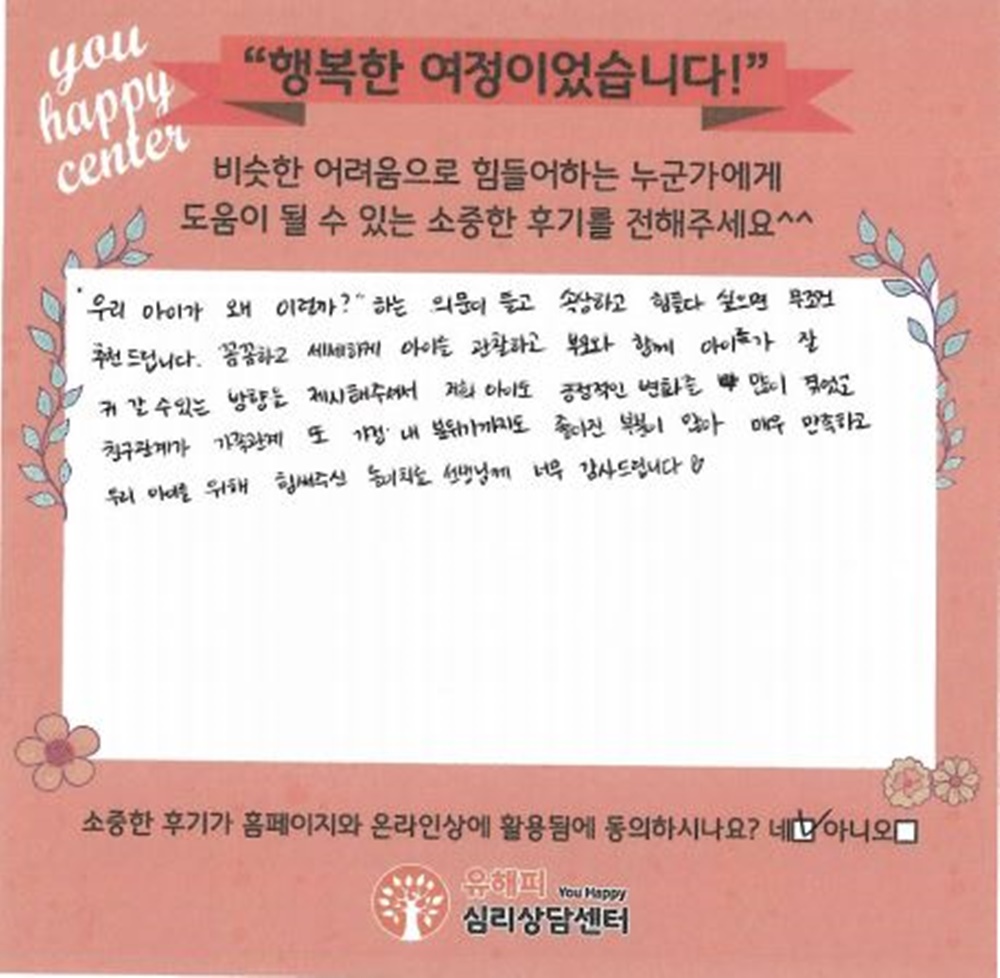 you
happy
center
“행복한 여정이었습니다!”
비슷한 어려움으로 힘들어하는 누군가에게
도움이 될 수 있는 소중한 후기를 전해주세요^^
"우리 아이가 왜 이럴까?" 하는 의문이 들고 속상하고 힘들다 싶으면 무조건
추천드립니다. 꼼꼼하고 세세하게 아이를 관찰하고 부모와 함께 아이가 잘
커 갈 수 있는 방향을 제시해주셔서 저희 아이도 긍정적인 변화를 많이 겪었고
친구관계가 가족관계 또 가정 내 분위기까지도 좋아진 부분이 많아 매우 만족하고
우리 아이를 위해 힘써주신 놀이치료 선생님께 너무 감사드립니다 ♡
소중한 후기가 홈페이지와 온라인상에 활용됨에 동의하시나요? 네☑ 아니오☐
유해피 You Happy
심리상담센터